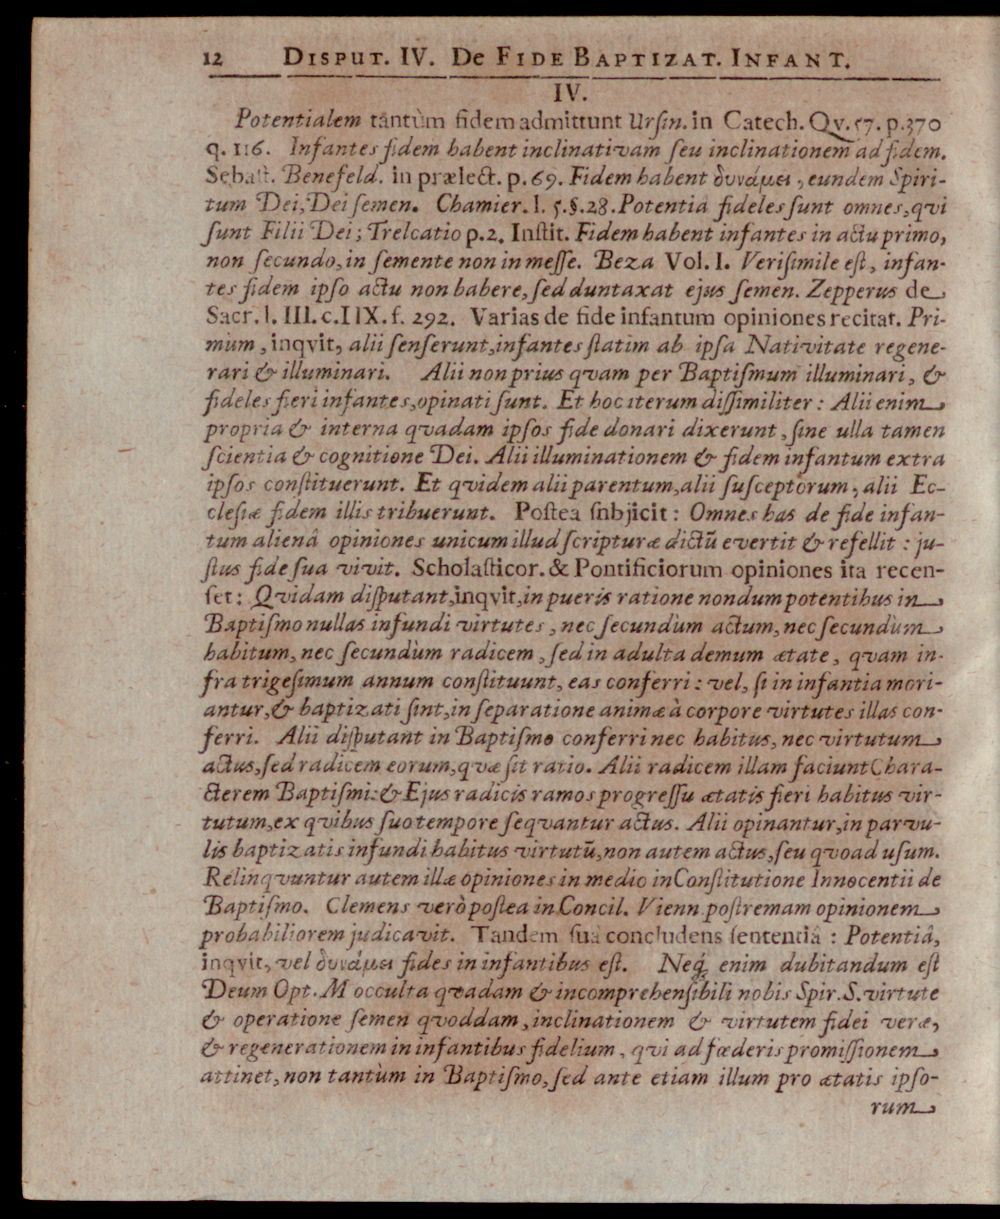 12 DISPUT. IV. De FIDE BAPTIZAT. INFANT.
IV.
Potentialem tãntùm fidem admittunt Ursin. in Catech. Qv. 57. p. 370
q. 116. Infantes fidem habent inclinativam ſeu inclinationem ad fidem.
Sebaſt. Benefeld. in prælect. p. 69. Fidem habent δυνάμει, eundem Spiri-
tum Dei, Dei ſemen. Chamier. l. 5. §. 28. Potentiâ fideles ſunt omnes, qvi
ſunt Filii Dei; Trelcatio p. 2. Inſtit. Fidem habent infantes in actu primo,
non ſecundo, in ſemente non in meſſe. Beza Vol. I. Veriſimile eſt, infan-
tes fidem ipſo actu non habere, ſed duntaxat ejus ſemen. Zepperus de
Sacr. l. III. c. IIX. f. 292. Varias de fide infantum opiniones recitat. Pri-
mùm, inqvit, alii ſenſerunt, infantes ſtatim ab ipſa Nativitate regene-
rari & illuminari. Alii non prius qvam per Baptiſmum illuminari, &
fideles fieri infantes, opinati ſunt. Et hoc iterum diſſimiliter: Alii enim
propria & interna qvadam ipſos fide donari dixerunt, ſine ulla tamen
ſcientia & cognitione Dei. Alii illuminationem & fidem infantum extra
ipſos conſtituerunt. Et qvidem alii parentum, alii ſuſceptorum, alii Ec-
cleſiæ fidem illis tribuerunt. Poſtea ſubjicit: Omnes has de fide infan-
tum alienâ opiniones unicum illud ſcripturæ dictũ evertit & refellit: ju-
ſtus fide ſua vivit. Scholaſticor. & Pontificiorum opiniones ita recen-
ſet: Qvidam diſputant, inqvit, in pueris ratione nondum potentibus in
Baptiſmo nullas infundi virtutes, nec ſecundùm actum, nec ſecundùm
habitum, nec ſecundùm radicem, ſed in adulta demum ætate, qvam in-
fra trigeſimum annum conſtituunt, eas conferri: vel, ſi in infantia mori-
antur, & baptizati ſint, in ſeparatione animæ à corpore virtutes illas con-
ferri. Alii diſputant in Baptiſmo conferri nec habitus, nec virtutum
actus, ſed radicem eorum, qvæ ſit ratio. Alii radicem illam faciunt Chara-
cterem Baptiſmi: & Ejus radicis ramos progreſſu ætatis fieri habitus vir-
tutum, ex qvibus ſuo tempore ſeqvantur actus. Alii opinantur, in parvu-
lis baptizatis infundi habitus virtutũ, non autem actus, ſeu qvoad uſum.
Relinqvuntur autem illæ opiniones in medio in Conſtitutione Innocentii de
Baptiſmo. Clemens verò poſtea in Concil. Vienn. poſtremam opinionem
probabiliorem judicavit. Tandem ſuâ concludens ſententiâ: Potentiâ,
inqvit, vel δυνάμει fides in infantibus eſt. Neq́; enim dubitandum eſt
Deum Opt. M occulta qvadam & incomprehenſibili nobis Spir. S. virtute
& operatione ſemen qvoddam, inclinationem & virtutem fidei veræ,
& regenerationem in infantibus fidelium, qvi ad fœderis promiſſionem
attinet, non tantùm in Baptiſmo, ſed ante etiam illum pro ætatis ipſo-
rum